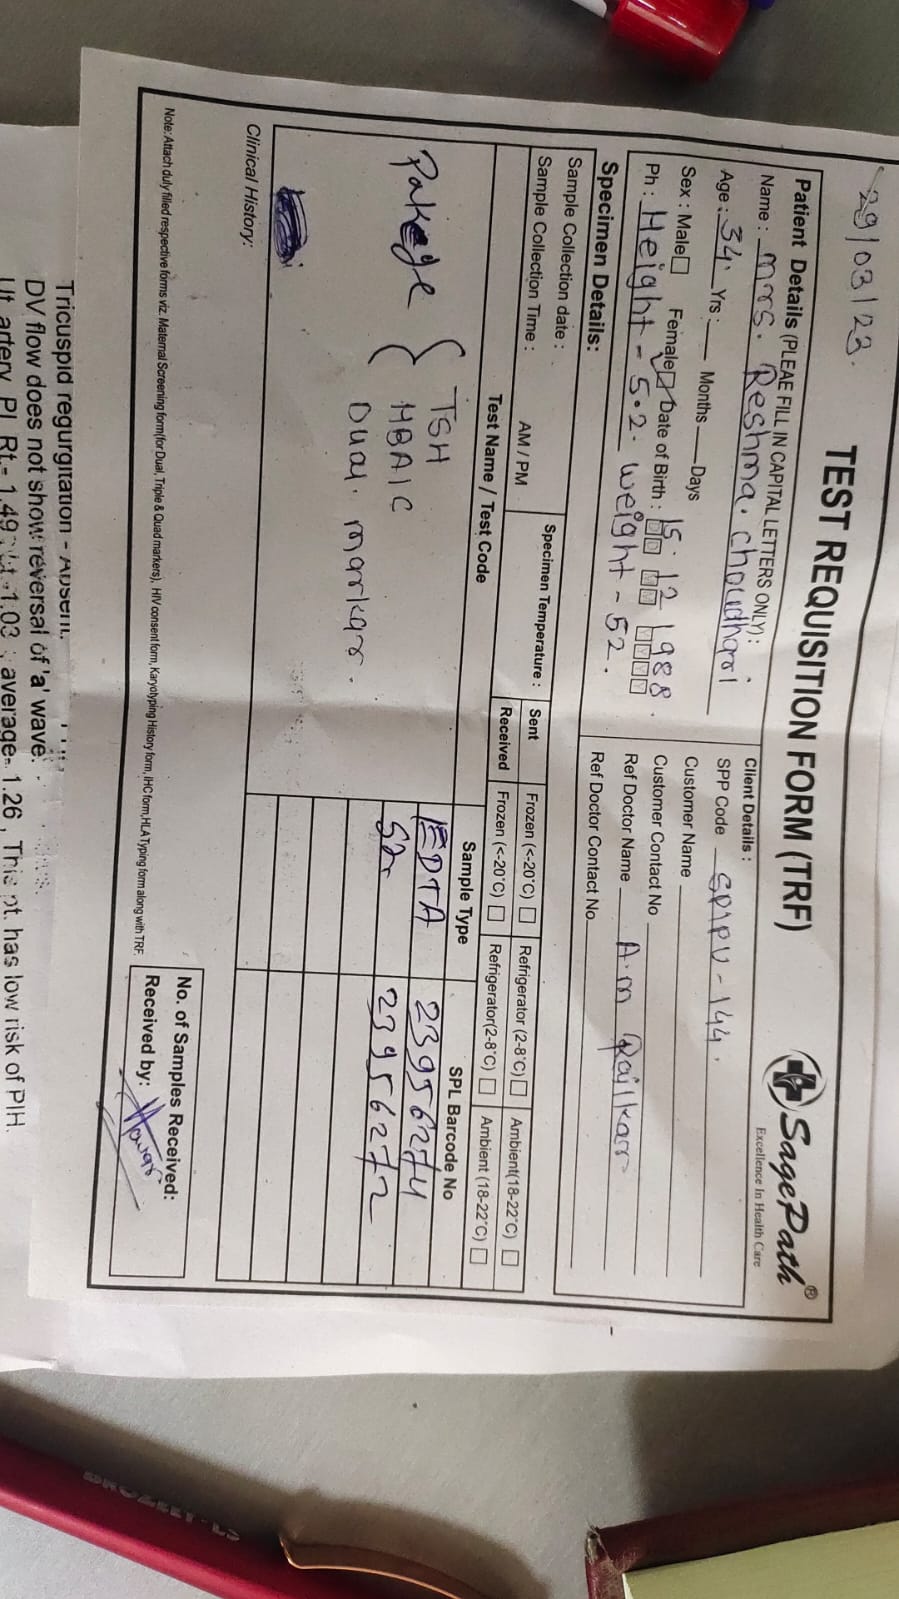 29/03/23.
TEST REQUISITION FORM (TRF)
SagePath®
Excellence In Health Care
Patient Details (PLEAE FILL IN CAPITAL LETTERS ONLY):
Name: mrs. Reshma. choudhari
Age: 34. Yrs: Months Days
Sex: Male Female Date of Birth: 15. 12 1988.
Ph: Height - 5.2. weight - 52.
Client Details:
SPP Code SPIPU - 144.
Customer Name
Customer Contact No
Ref Doctor Name A.m Railkar
Ref Doctor Contact No.
Specimen Details:
Sample Collection date:
Sample Collection Time: AM / PM
Specimen Temperature:
Sent Frozen (<-20°C) Refrigerator (2-8°C) Ambient(18-22°C)
Received Frozen (<-20°C) Refrigerator(2-8°C) Ambient (18-22°C)
Test Name / Test Code Sample Type SPL Barcode No
Pakege { TSH
HBA1C
Dual. markar.
EDTA 23956274
23956272
Clinical History:
No. of Samples Received:
Received by:
Note: Attach duly filled respective forms viz. Maternal Screening form(for Dual, Triple & Quad markers), HIV consent form, Karyotyping History form, IHC form, HLA Typing form along with TRF.
Tricuspid regurgitation - Absent.
DV flow does not show reversal of 'a' wave.
Ut. artery PI Rt.- 1.49 1.03 ; average- 1.26 . This pt. has low risk of PIH.